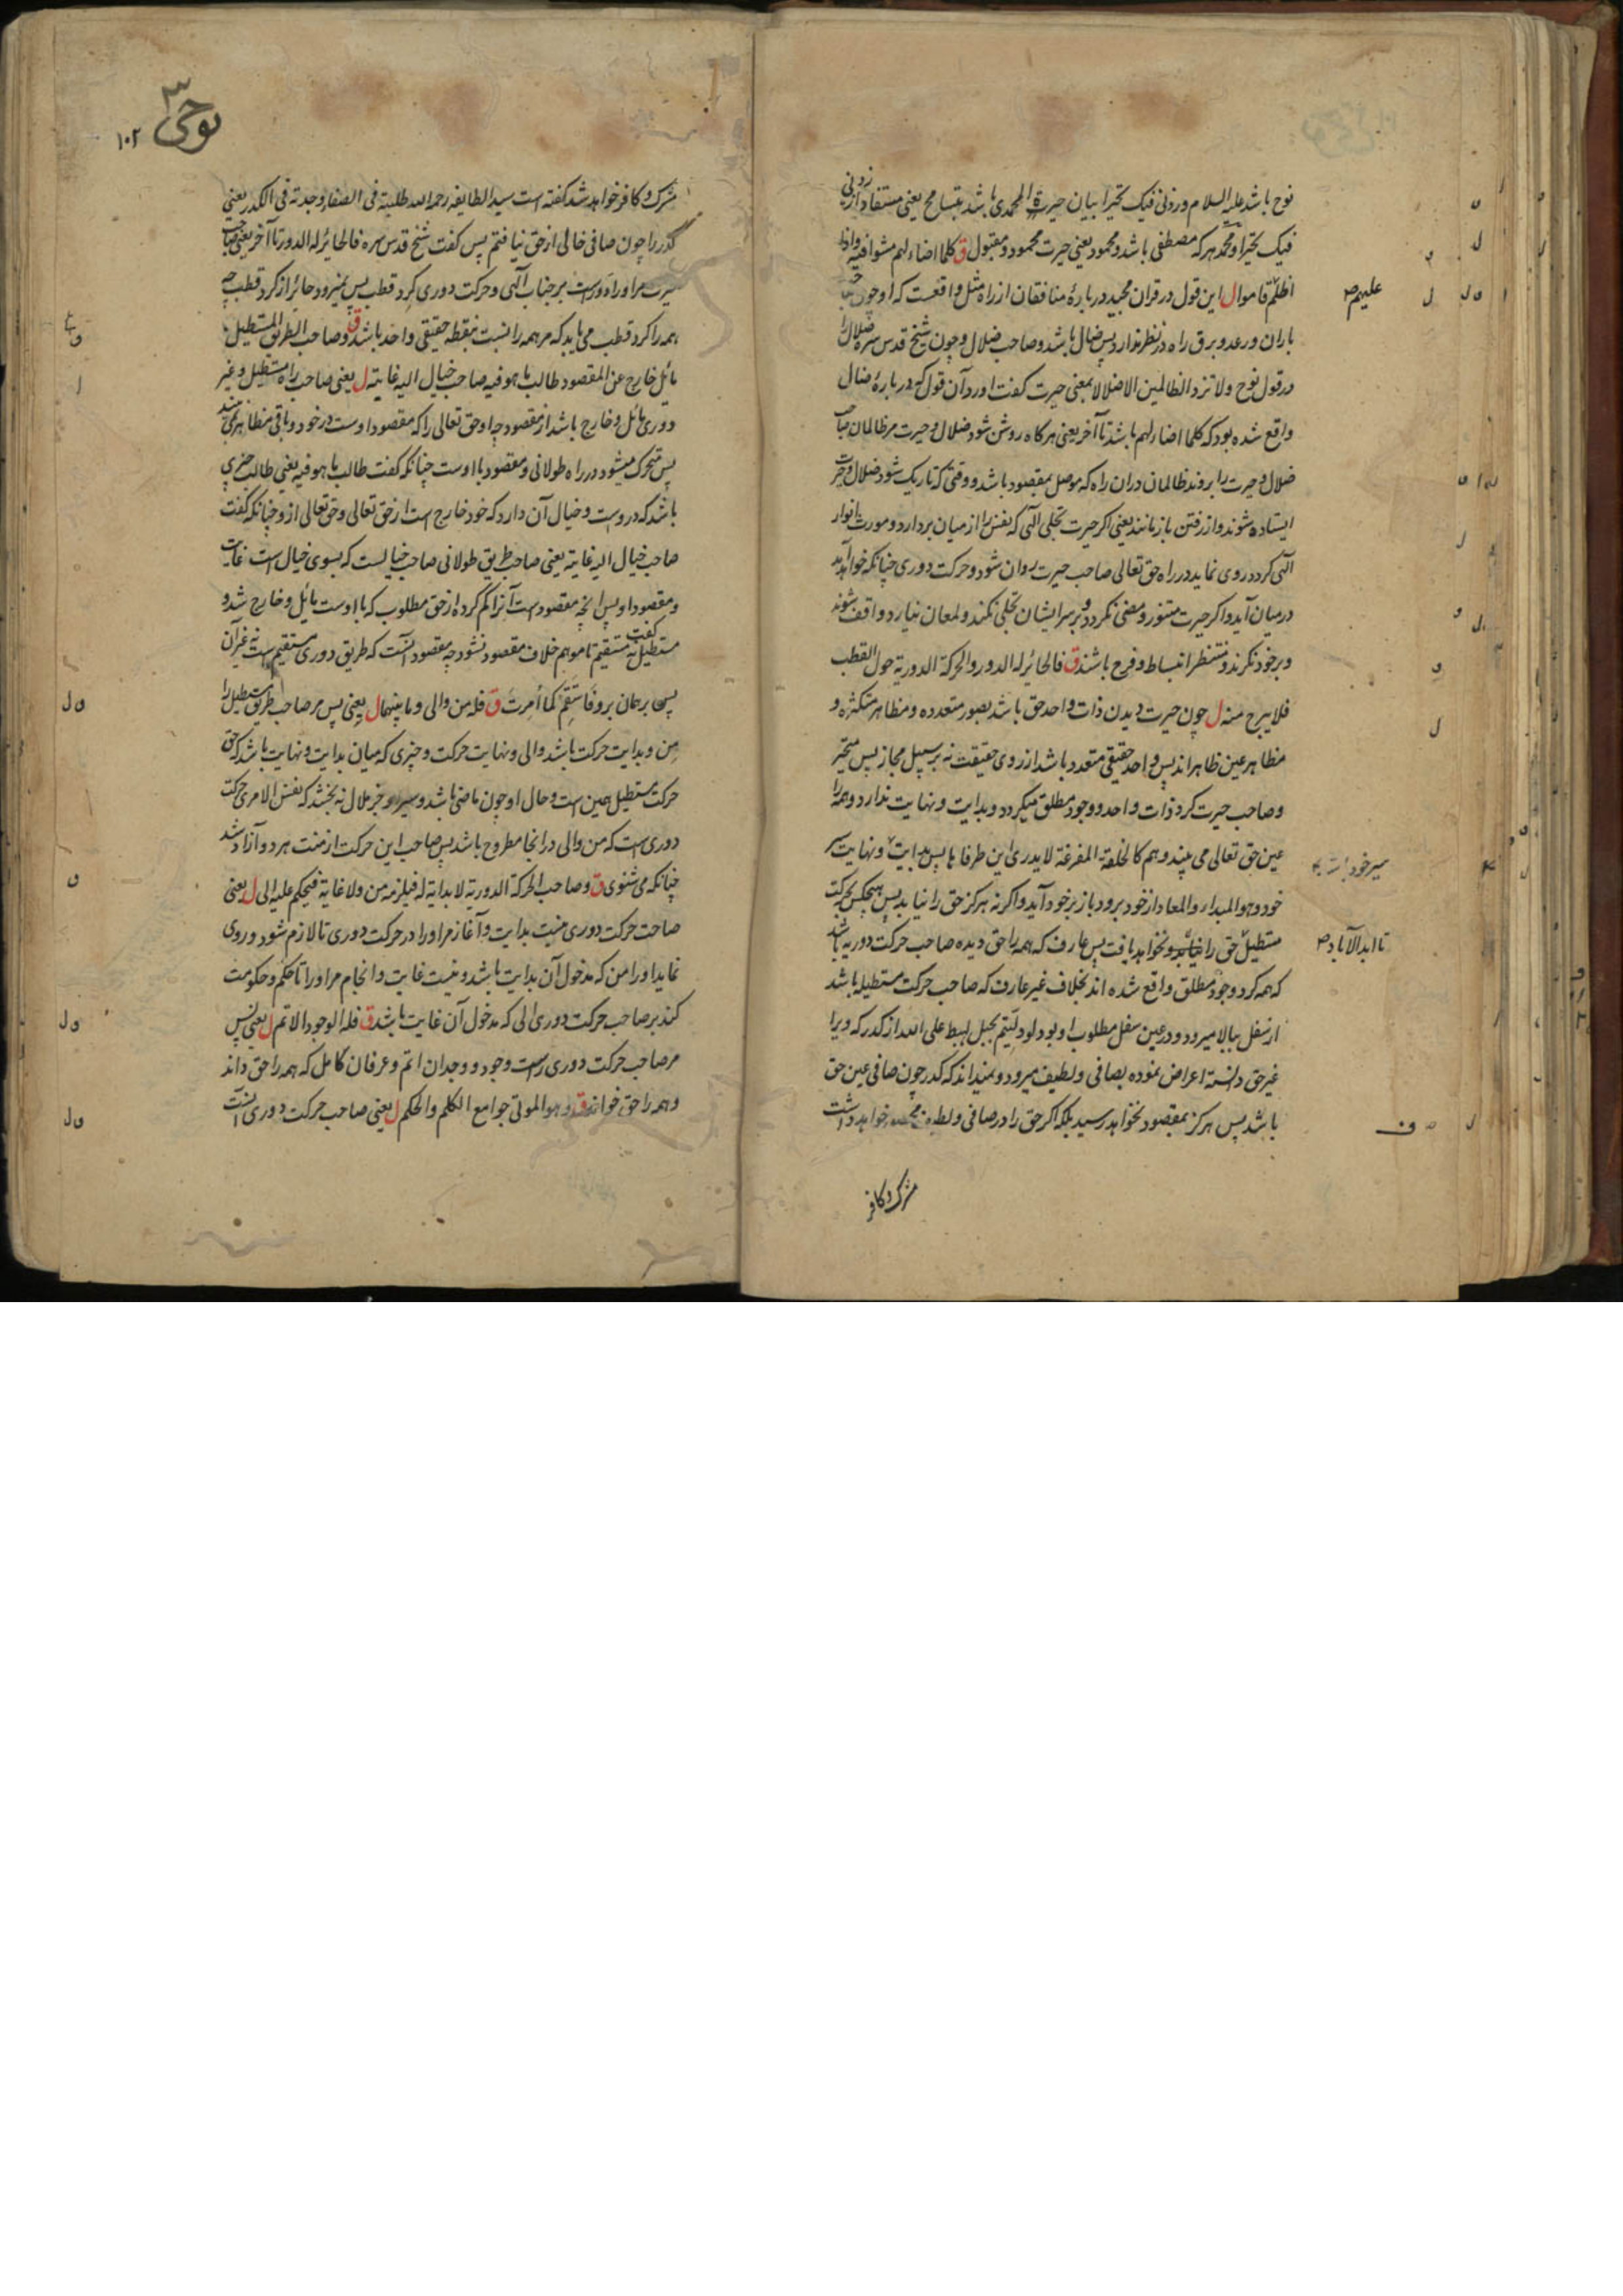 نوح باشد علیه السلام و زدنی فیک تحیرا بیان حیرة المحمدی باشد بتسامح یعنی مستفاد از زدنی
فیک تحیرا و محمد هرکه مصطفی باشد و محمود یعنی حیرت محمود و مقبول ق کلما اضاء لهم مشوا فیه و اذا
اظلم علیهم قاموا ل این قول در قران مجید دربارهٔ منافقان از راه مثل واقعست که او چون
باران و رعد و برق راه در نظر ندارد پس ضال باشد و صاحب ضلال و چون شیخ قدس سره ضلال را
در قول نوح ولا تزد الظالمین الا ضلالا بمعنی حیرت گفت اورد آن قول که دربارهٔ ضال
واقع شده بود که کلما اضاء لهم باشد تا آخر یعنی هرکاه روشن شود ضلال و حیرت مر ظالمان صاحب
ضلال و حیرت را بروند ظالمان دران راه که موصل بمقصود باشد و وقتی که تاریک شود ضلال و حیرت
ایستاده شوند و از رفتن باز مانند یعنی اکر حیرت تجلی الهی که نفس را از میان بردارد و مورث انوار
آلهی کردد روی نماید در راه حق تعالی صاحب حیرت روان شود و حرکت دوری چنانکه خواهد آمد
درمیان آید و اکر حیرت مستنور و مضی نکردد و بر سر ایشان تجلی نکند و لمعان نیارد واقف شوند
و برخود نکرند و منتظر انبساط و فرح باشند ق فالحائر له الدور و الحرکة الدوریة حول القطب
فلا یبرح منه ل چون حیرت دیدن ذات واحد حق باشد بصور متعدده و مظاهر متکثره و
مظاهر عین ظاهراند پس واحد حقیقی متعدد باشد از روی حقیقت نه بر سبیل مجاز پس متحیر
و صاحب حیرت کرد ذات واحد و وجود مطلق میکردد و بدایت و نهایت ندارد و همه را
عین حق تعالی می بیند و هم کالحلقة المفرغة لا یدری این طرفاها پس بدایت و نهایت سیر
خود و هو المبداء و المعاد از خود برود باز بر خود آید و اکر نه هرکز حق را نیابد پس هیچکس بحرکت
مستطیل حق را نیابد و نخواهد یافت تا ابد الآباد پس عارف که همه را حق دیده صاحب حرکت دوریه باشد
که همه کرد وجود مطلق واقع شده اند بخلاف غیر عارف که صاحب حرکت مستطیله باشد
از سفل ببالا میرود و در عین سفل مطلوب او بود لو دلیتم بحبل لهبط علی الله از کدر که ویرا
غیر حق دانسته اعراض نموده بصافی و لطیف میرود و نمیداند که کدر چون صافی عین حق
باشد پس هرکز بمقصود نخواهد رسید بلکه اکر حق را در صافی و لطیف منحصر خواهد داشت
مشرک و کافر
علیهم صح
سیر خود
تا ابد الآباد صح
نوحی
۳
۱۰۲
مشرک و کافر خواهد شد گفته است سید الطایفه رحمه الله طلبته فی الصفاء وجدته فی الکدر یعنی
کدر را چون صافی خالی از حق نیافتم پس گفت شیخ قدس سره فالحائر له الدور تا آخر یعنی صاحب
حیرت مر او را دورست بر جناب آلهی و حرکت دوری کرد قطب پس نمیرود حائر از کرد قطب چه
همه را کرد قطب می یابد که مر همه را نسبت بنقطه حقیقی واحد باشد ق و صاحب الطریق المستطیل
مائل خارج عن المقصود طالب ما هو فیه صاحب خیال الیه غایته ل یعنی صاحب راه مستطیل و غیر
دوری مائل و خارج باشد از مقصود چه او حق تعالی را که مقصود اوست در خود و باقی مظاهر نمی بیند
پس متحرک میشود در راه طولانی و مقصود با اوست چنانکه گفت طالب ما هو فیه یعنی طالب چیزی
باشد که دروست و خیال آن دارد که خود خارج است از حق تعالی و حق تعالی ازو چنانکه گفت
صاحب خیال الیه غایته یعنی صاحب طریق طولانی صاحب خیالیست که بسوی خیال است غایت
و مقصود او پس آنچه مقصودست آنرا کم کرده از حق مطلوب که با اوست مائل و خارج شد و
مستطیل گفت نه مستقیم تا موهم خلاف مقصود نشود چه مقصود آنست که طریق دوری مستقیم است نه غیر آن
پس بر همان برو فَاسْتَقِمْ کَمَا اُمِرْتَ ق فله من و الی و ما بینهما ل یعنی پس مر صاحب طریق مستطیل را
مِن و بدایت حرکت باشد و الی و نهایت حرکت و چیزی که میان بدایت و نهایت باشد که حق
حرکت مستطیل همین است و حال او چون ماضی باشد و سیر او جز ملال نه بخشد که نفس الامری حرکت
دوری است که من و الی درانجا مطروح باشد پس صاحب این حرکت از منت هر دو آزاد شد
چنانکه می شنوی ق و صاحب الحرکة الدوریة لا بدایة له فیلزمه من و لا غایة فیحکم علیه الی ل یعنی
صاحب حرکت دوری نیست بدایت و آغاز مر او را در حرکت دوری تا لازم شود و روی
نماید او را من که مدخول آن بدایت باشد و نیست غایت و انجام مر او را تا حکم و حکومت
کند بر صاحب حرکت دوری الی که مدخول آن غایت باشد ق فله الوجود الاتم ل یعنی پس
مر صاحب حرکت دوری راست وجود و وجدان اتم و عرفان کامل که همه را حق داند
و همه را حق خواند ق و هو الموتی جوامع الکلم و الحکم ل یعنی صاحب حرکت دوری آنست